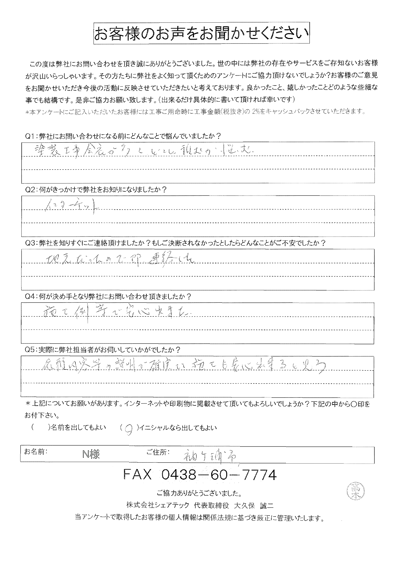 お客様のお声をお聞かせください
この度は弊社にお問い合わせを頂き誠にありがとうございました。世の中には弊社の存在やサービスをご存知ないお客様
が沢山いらっしゃいます。その方たちに弊社をよく知って頂くためのアンケートにご協力頂けないでしょうか？お客様のご意見
をお聞かせいただき今後の活動に反映させていきたいと考えております。良かったこと、嬉しかったことどのような些細な
事でも結構です。是非ご協力お願い致します。（出来るだけ具体的に書いて頂ければ幸いです）
*本アンケートにご記入いただいたお客様には工事ご用命時に工事金額（税抜き）の2%をキャッシュバックさせていただきます。
Q1：弊社にお問い合わせになる前にどんなことで悩んでいましたか？
Q2：何がきっかけで弊社をお知りになりましたか？
インターネット
Q3：弊社を知りすぐにご連絡頂けましたか？もしご決断されなかったとしたらどんなことがご不安でしたか？
地元だったので即連絡した
Q4：何が決め手となり弊社にお問い合わせ頂きましたか？
施工例等で安心出来た
Q5：実際に弊社担当者がお伺いしていかがでしたか？
* 上記についてお願いがあります。インターネットや印刷物に掲載させて頂いてもよろしいでしょうか？下記の中から〇印を
お付下さい。
（　）名前を出してもよい　（〇）イニシャルなら出してもよい
お名前：　N様　ご住所：　袖ケ浦市
FAX 0438-60-7774
ご協力ありがとうございました。
株式会社シェアテック 代表取締役 大久保 誠二
当アンケートで取得したお客様の個人情報は関係法規に基づき厳正に管理いたします。